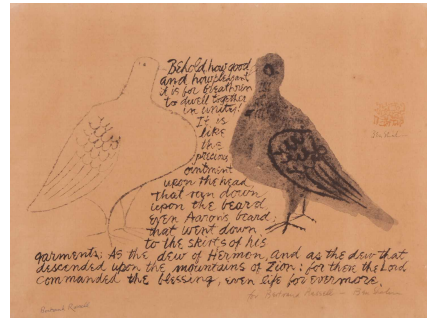 Behold how good
and how pleasant
it is for breathren
to dwell together
in unity!
It is
like
the
precious
ointment
upon the head
that ran down
upon the beard
even Aaron's beard:
that went down
to the skirts of his
garments; As the dew of Hermon, and as the dew that
descended upon the mountains of Zion: for there the Lord
commanded the blessing, even life for evermore.
for